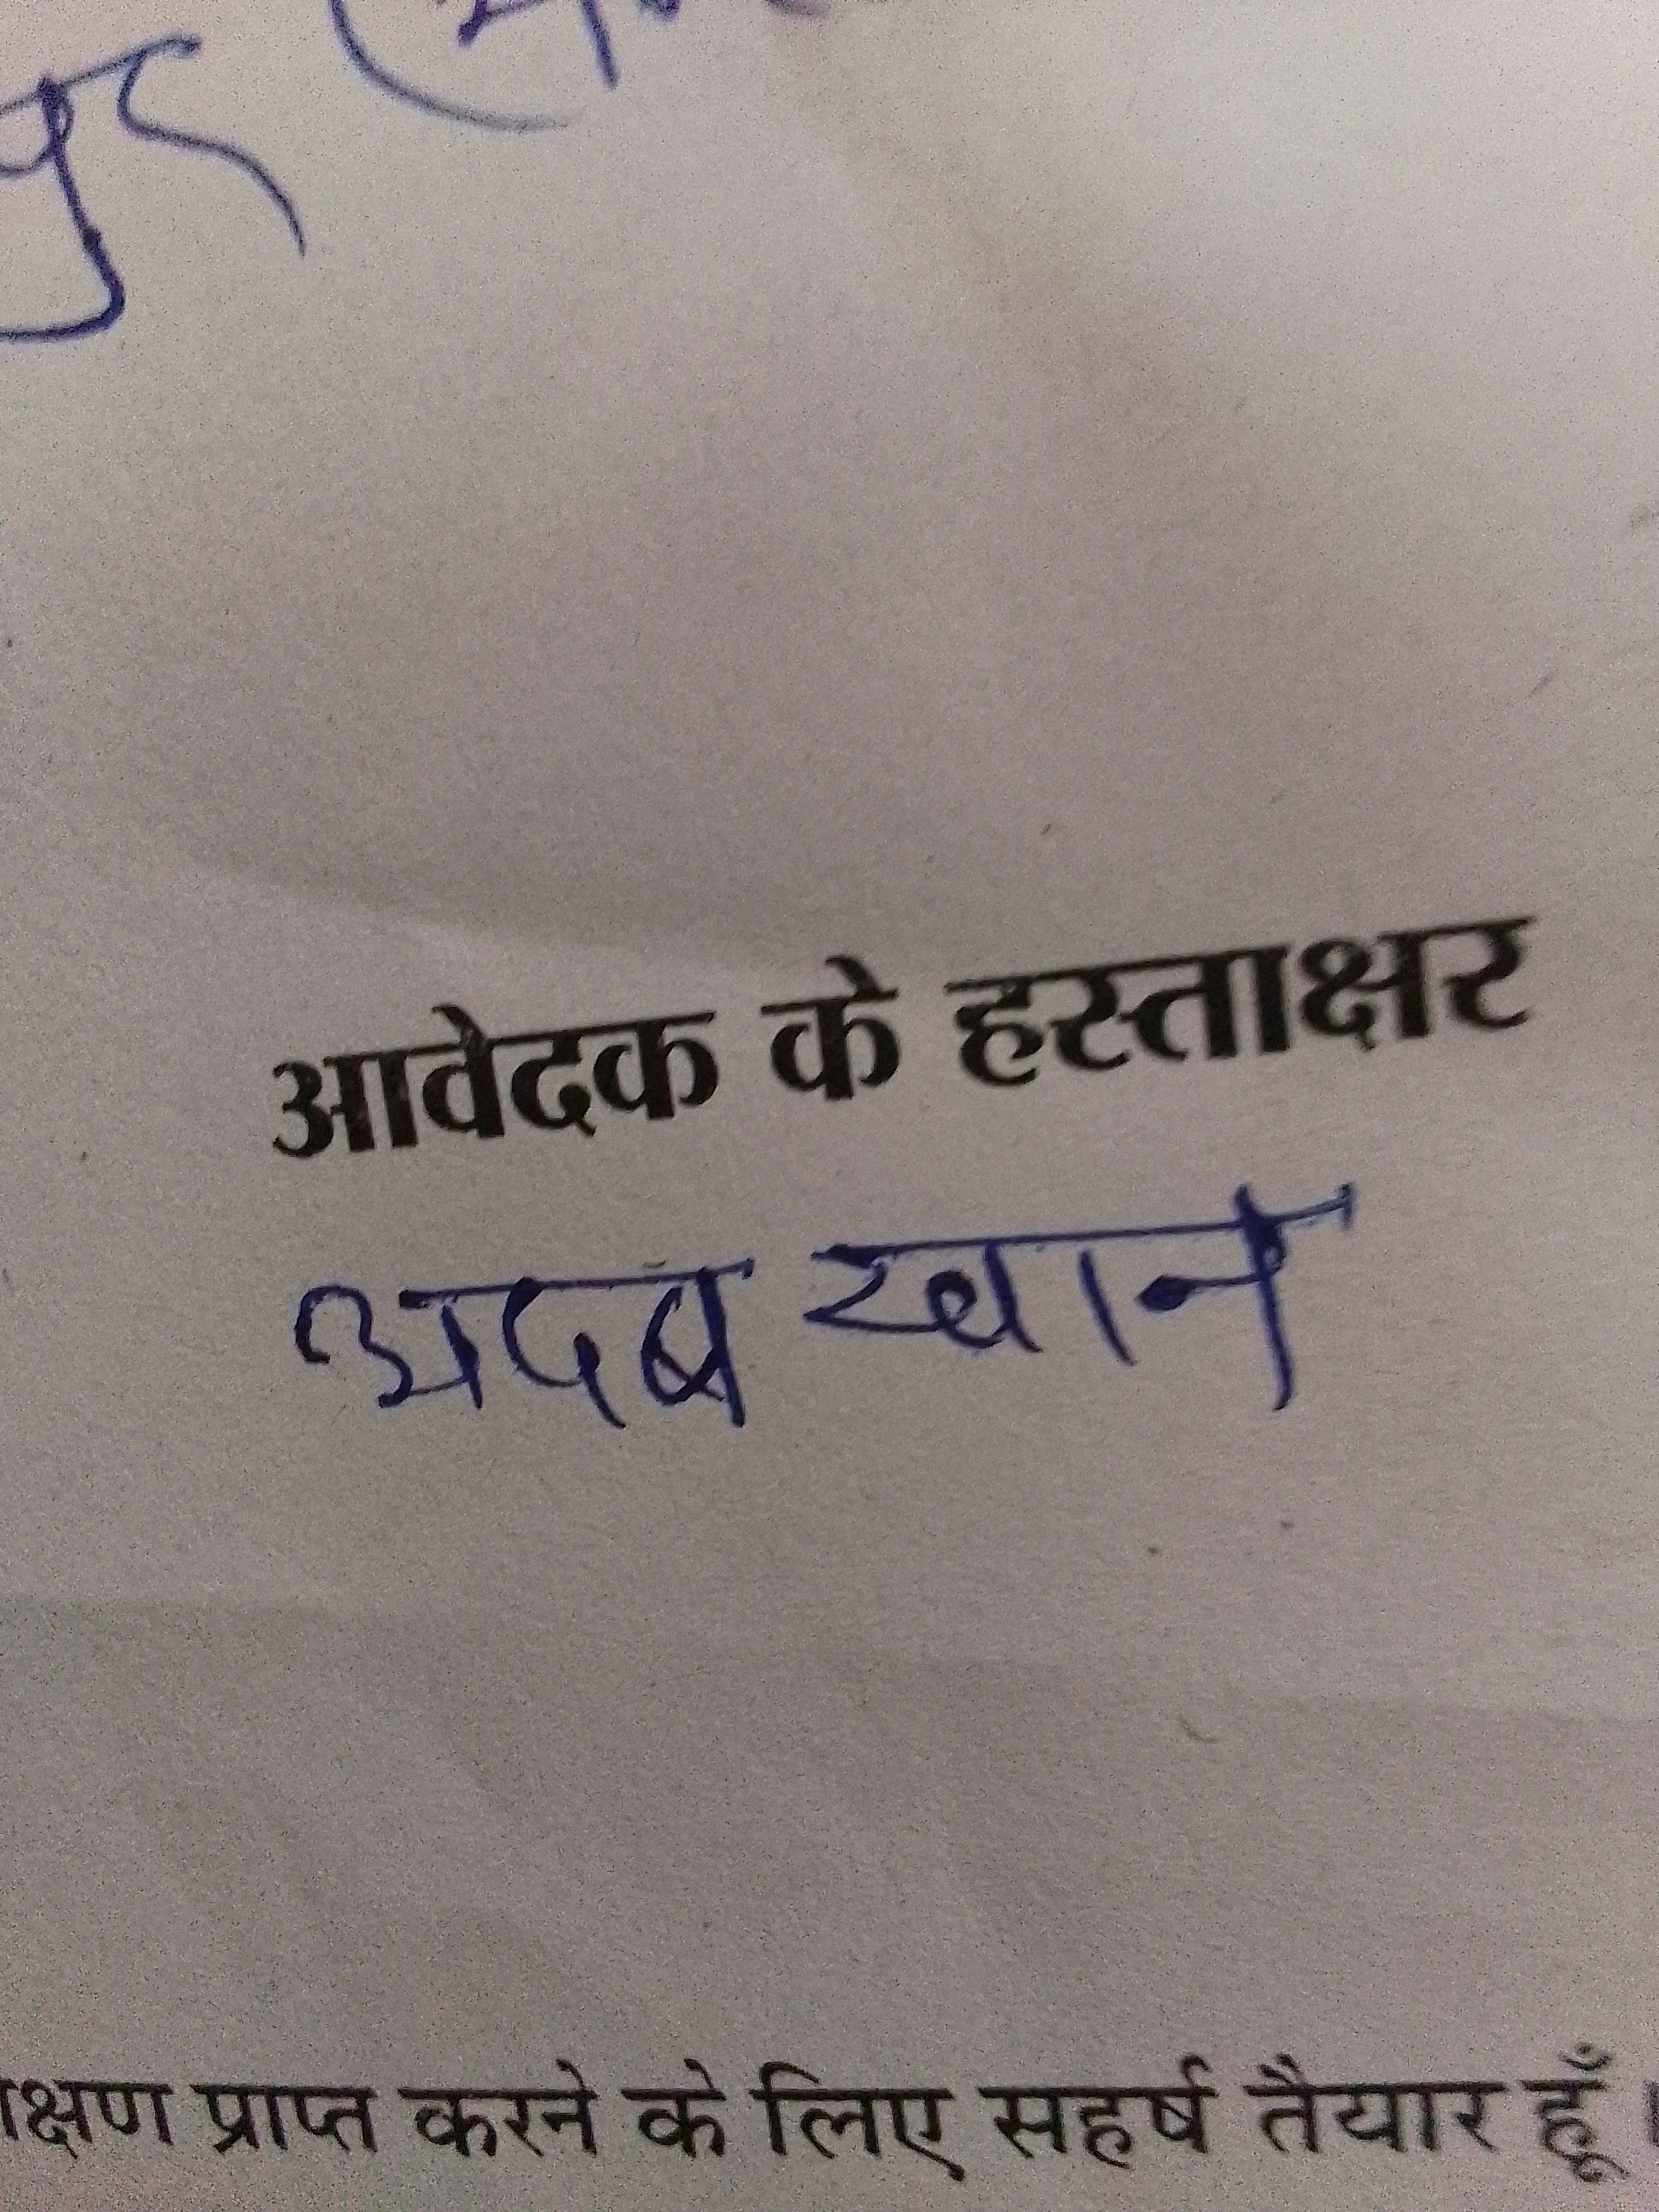 आवेदक के हस्ताक्षर
अदब खान
प्राप्त करने के लिए सहर्ष तैयार हूँ ।